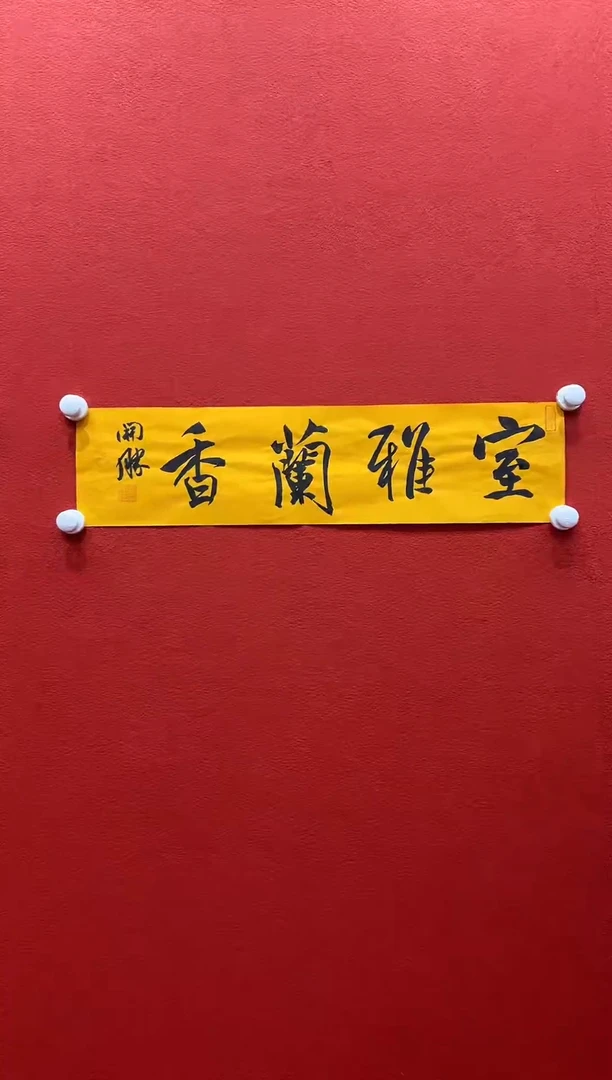 室雅蘭香
開勝